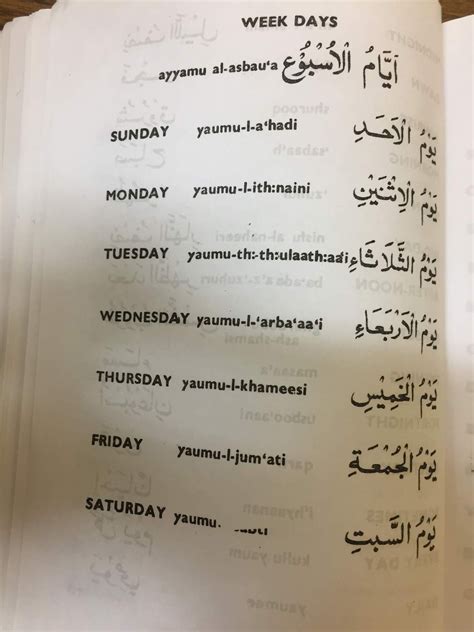 WEEK DAYS
ayyamu al-asbau'a اَيَّامُ الْاُسْبُوْعِ
SUNDAY yaumu-l-a'hadi يَوْمُ الْاَحَدِ
MONDAY yaumu-l-ith:naini يَوْمُ الْاِثْنَيْنِ
TUESDAY yaumu-th:-th:ulaath:aa'i يَوْمُ الثَّلَاثَاءِ
WEDNESDAY yaumu-l-'arba'aa'i يَوْمُ الْاَرْبَعَاءِ
THURSDAY yaumu-l-khameesi يَوْمُ الْخَمِيْسِ
FRIDAY yaumu-l-jum'ati يَوْمُ الْجُمْعَةِ
SATURDAY yaumu. يَوْمُ السَّبْتِ